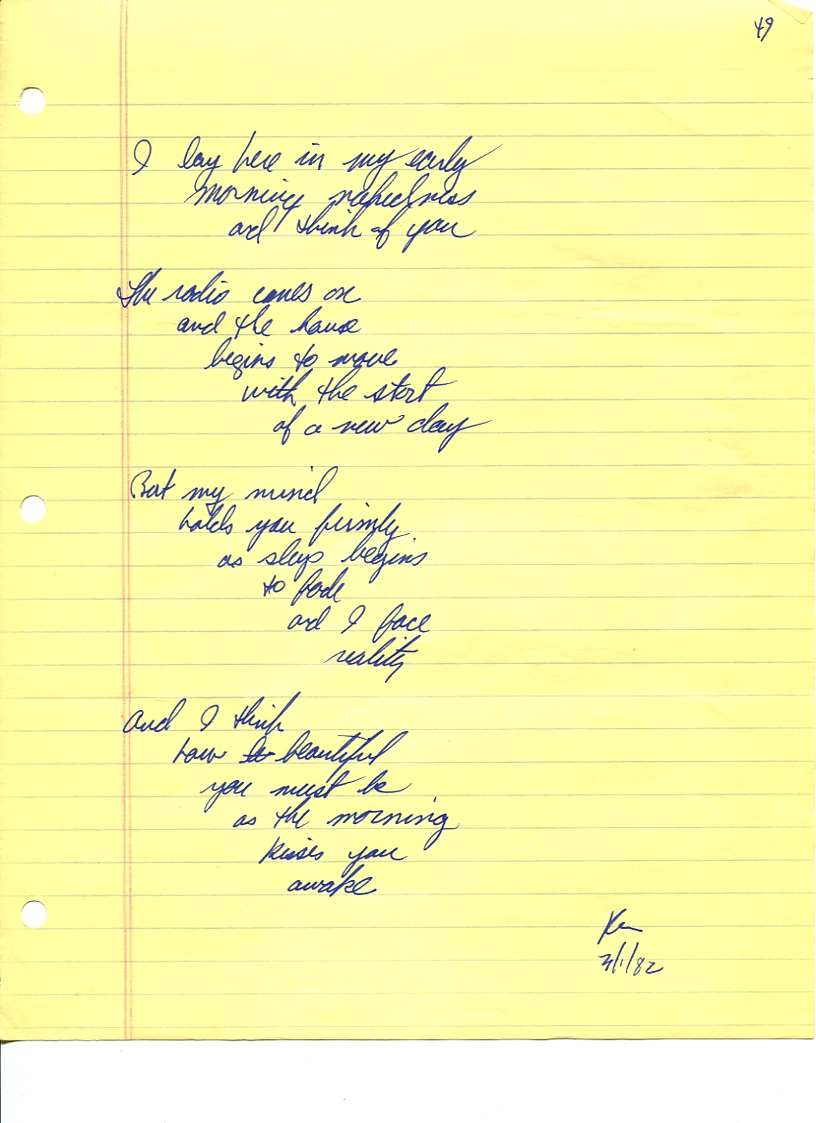 49
I lay here in my early
morning nakedness
and think of you
The radio comes on
and the house
begins to move
with the start
of a new day
But my mind
holds you firmly
as sleep begins
to fade
and I face
reality
And I think
how beautiful
you must be
as the morning
kisses you
awake
Ken
/1/82